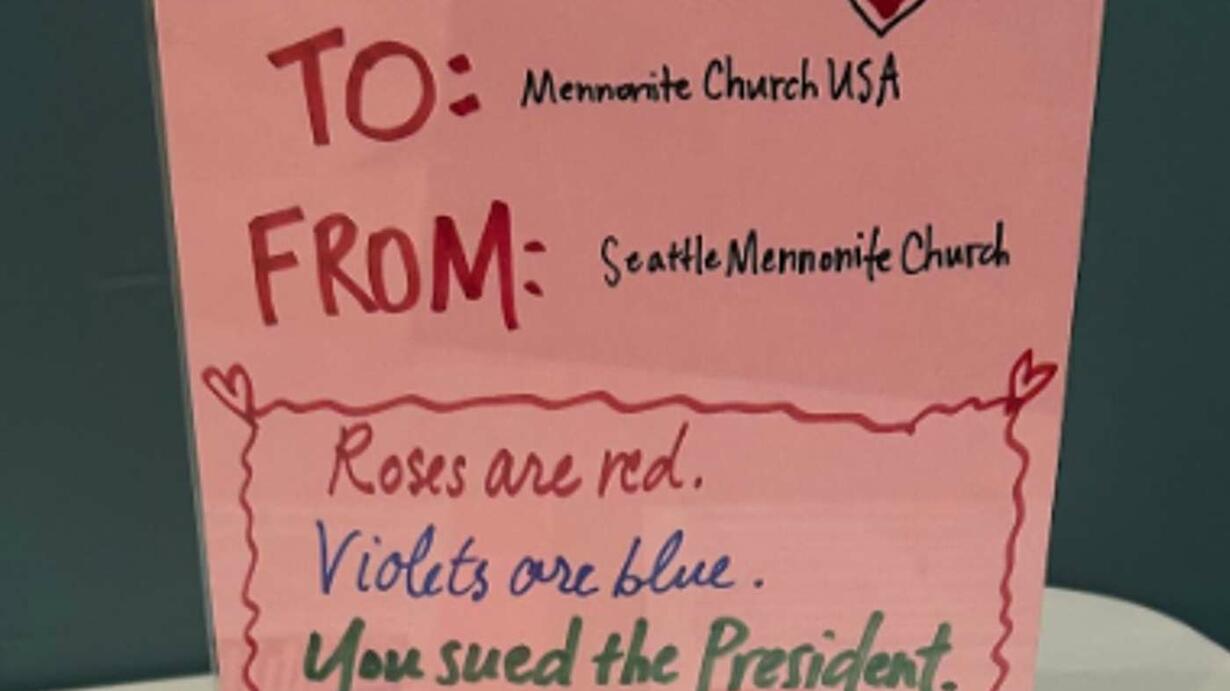 TO: Mennonite Church USA
FROM: Seattle Mennonite Church
Roses are red.
Violets are blue.
You sued the President.